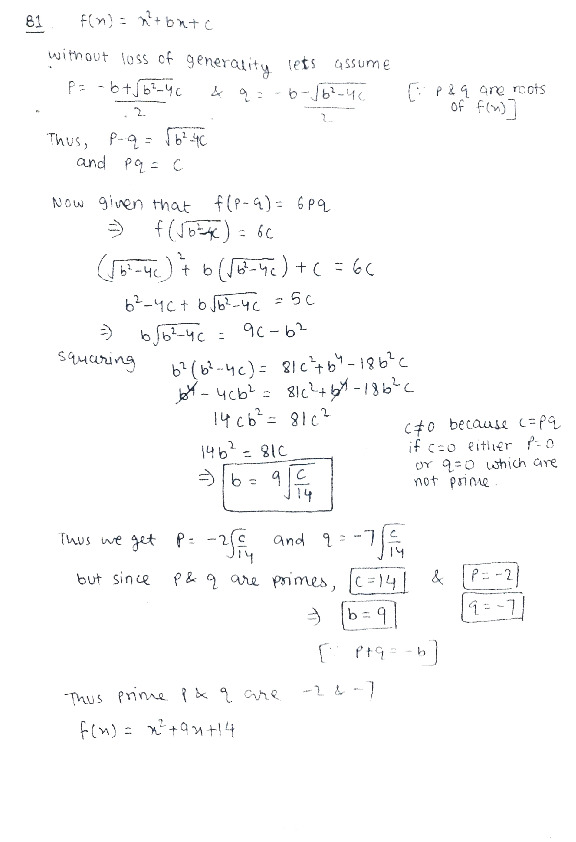 81 f(x) = x²+bx+c
without loss of generality lets assume
P = -b+√b²-4c / 2 & q = -b-√b²-4c / 2 [∵ p & q are roots of f(x)]
Thus, P-q = √b²-4c
and pq = c
Now given that f(p-q) = 6pq
⇒ f(√b²-4c) = 6c
(√b²-4c)² + b(√b²-4c) + c = 6c
b²-4c + b√b²-4c = 5c
⇒ b√b²-4c = 9c-b²
squaring b²(b²-4c) = 81c²+b⁴-18b²c
b⁴ - 4cb² = 81c²+b⁴-18b²c
14cb² = 81c²
14b² = 81c
⇒ b = 9√c/14
c≠0 because c=pq
if c=0 either p=0
or q=0 which are
not prime.
Thus we get p = -2√c/14 and q = -7√c/14
but since p & q are primes, c=14 & p=-2
⇒ b=9 q=-7
[∵ p+q = -b]
Thus prime p & q are -2 & -7
f(x) = x²+9x+14